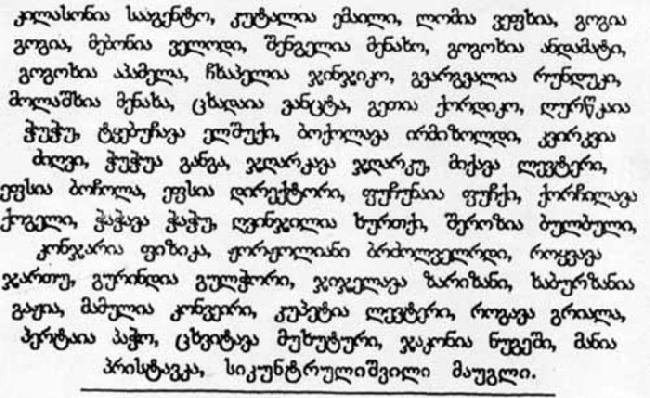 კილასონია სააგენტო, კუტალია ემაილი, ლომია ვეფხია, გოგია
გოგია, მებონია ველოდი, შენგელია მენახო, გოგოხია ანდამატი,
გოგოხია აპამელა, ჩხაპელია ჯინჯიკო, გვარგვალია რუნდუკი,
მოლაშხია მენახა, ცხადაია ვანცტა, გეთია ქორდიკო, ღურწკაია
ჭუჭუ, ტყებუჩავა ელშუქი, ბოქოლავა ირმიზოლდი, კვირკვია
ძიღვი, ჭუჭუა განგა, ჯღარკავა ჯღარკუ, მიქავა ლევტერი,
ეფსია ბოჩოლა, ეფსია დირექტორი, ფუჩუნაია ფუჩქი, ქორჩილავა
ქოგელი, ჭაჭავა ჭაჭუ, ღვინჯილია ხურთქი, შეროზია ბულბული,
კონჯარია ფიზიკა, ჟორჟოლიანი ბრძოლველრდი, როყვავა
ჯართუ, გურინდია გულჭორი, ჯიჯელავა ზარიზანი, საბურზანია
გაჟია, მამულია კონვეირი, კუპეტია ლევტერი, როგავა გრიალა,
პერტაია პაჭო, ცხვიტავა მუხუტური, ჯაკონია ნუგეში, მანია
პრისტავკა, სიკუნტრულიშვილი მაუგლი.